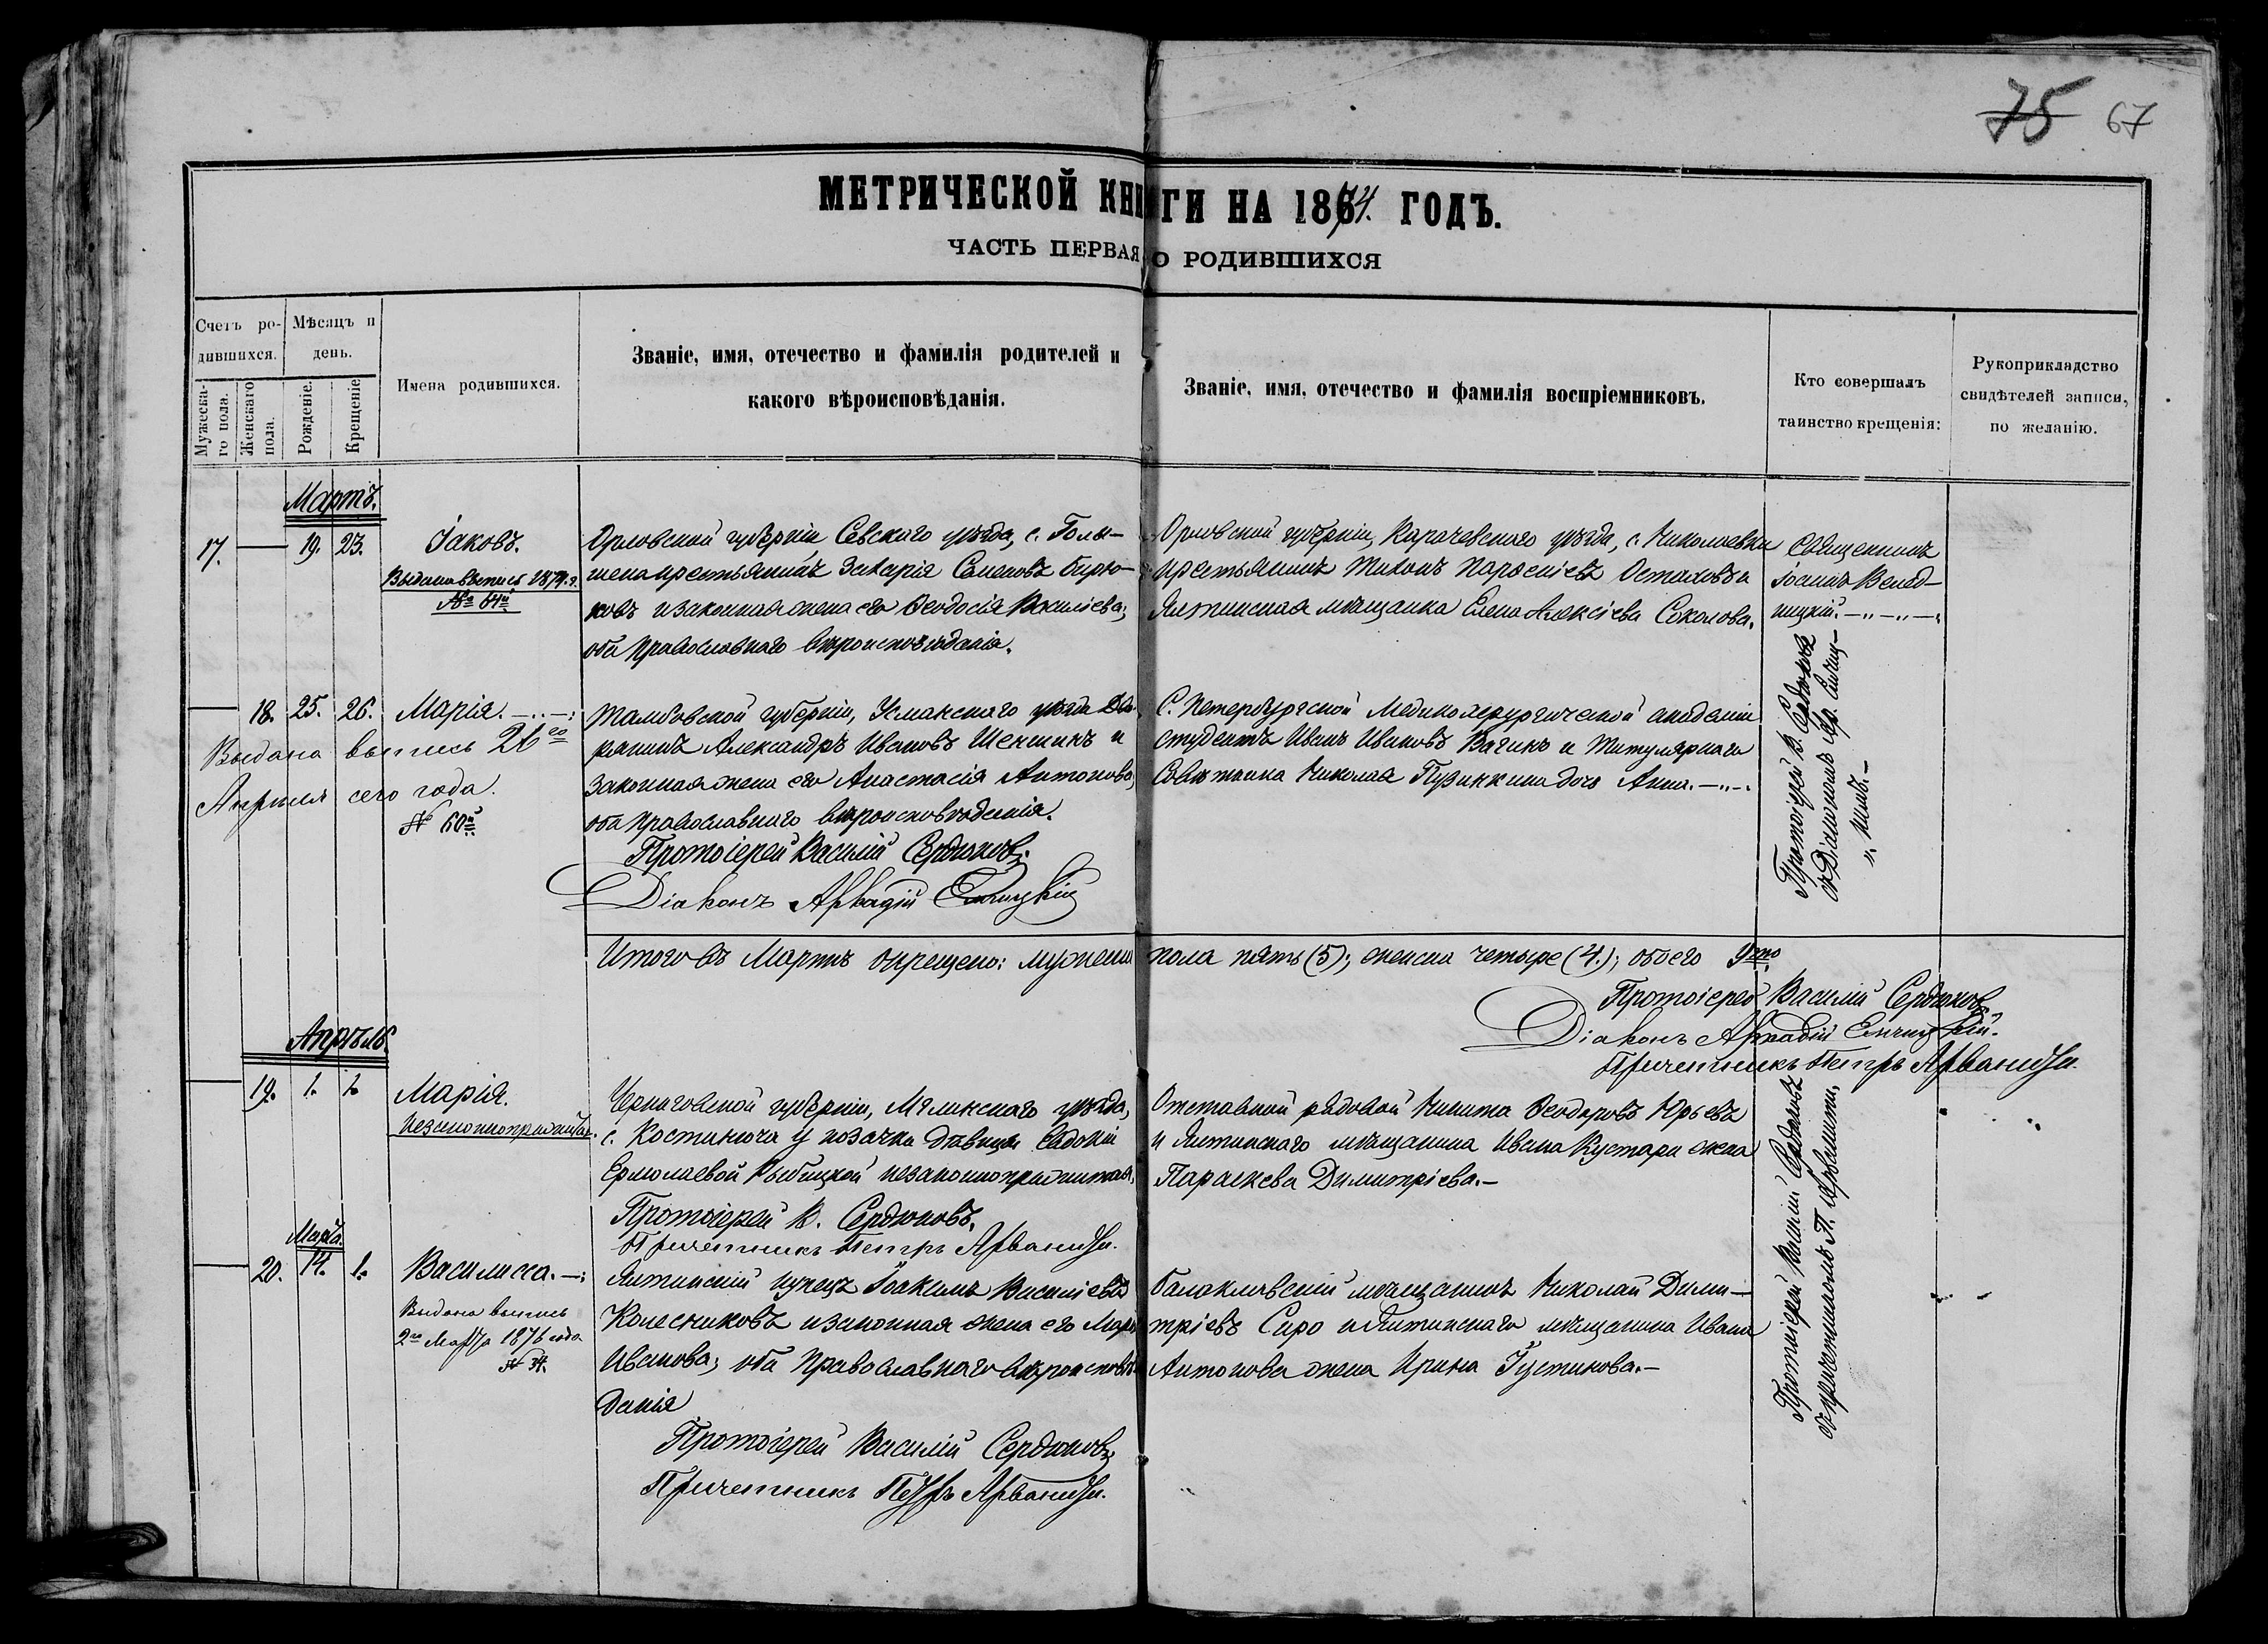 75 67
МЕТРИЧЕСКОЙ КНИГИ НА 1874. ГОДЪ.
ЧАСТЬ ПЕРВАЯ О РОДИВШИХСЯ
Счетъ ро-
дившихся.
Мѣсяцъ и
день.
Мужеска-
го пола.
Женскаго
пола.
Рожденіе.
Крещеніе
Имена родившихся.
Званіе, имя, отечество и фамилія родителей и
какого вѣроисповѣданія.
Званіе, имя, отечество и фамилія воспріемниковъ.
Кто совершалъ
таинство крещенія:
Рукоприкладство
свидѣтелей записи,
по желанію.
Мартъ.
17. 19. 23. Іаковъ.
Выдана выпись 1874 г.
Орловской губерніи Севскаго уѣзда, с. Голы-
шена крестьянинъ Захарія Семеновъ Бирю-
ковъ и законная жена его Ѳеодосія Василіева;
оба православнаго вѣроисповѣданія.
Орловской губерніи, Карачевскаго уѣзда, с. Николаевки
крестьянинъ Тихонъ Парѳеніевъ Остаховъ и
Ялтинская мѣщанка Елена Алексіева Соколова.
Священникъ
Іоаннъ Велад-
ницкій.
18. 25. 26. Марія.
Выдана выпись 26го
Апрѣля сего года.
№ 60й
Тамбовской губерніи, Усманскаго уѣзда Дво-
рянинъ Александръ Ивановъ Шеншинъ и
законная жена его Анастасія Антонова;
оба православнаго вѣроисповѣденія.
Протоіерей Василій Сердюковъ.
Діаконъ Аркадій Енчицкій
С. Петербургской Медикохирургической академіи
студентъ Иванъ Ивановъ Вагинъ и Титулярнаго
Совѣтника Николая Пузинкина дочь Анна.
Протоіерей В. Сердюковъ
съ Діакономъ Ар. Енчиц-
кимъ.
Итого въ Мартѣ окрещено: мужеска пола пять (5); женска четыре (4.); обоего 9ть
Протоіерей Василій Сердюковъ
Діаконъ Аркадій Енчицкій.
Причетникъ Петръ Арваниди.
Апрѣль.
19. 1. 1. Марія.
незаконноприжитая.
Черниговской губерніи, Мглинскаго уѣзда,
с. Костинича у козачки дѣвицы Евдокіи
Ермолаевой Рыбицкой незаконноприжитая.
Протоіерей В. Сердюковъ.
Причетникъ Петръ Арваниди.
Отставной рядовой Никита Ѳеодоровъ Юрьевъ
и Ялтинскаго мѣщанина Ивана Кустари жена
Параскева Димитріева.
Марта.
20. 14. 1. Василисса.
Выдана выпись
2го Марта 1876 года
Ялтинскій купецъ Іоакимъ Василіевъ
Колесниковъ и законная жена его Марія
Иванова; оба православнаго вѣроисповѣ-
данія
Протоіерей Василій Сердюковъ
Причетникъ Петръ Арваниди.
Балаклавскій мѣщанинъ Николай Дими-
тріевъ Сиро и Ялтинскаго мѣщанина Ивана
Антонова жена Ирина Іустинова.
Протоіерей Василій Сердюковъ
съ причетникомъ П. Арваниди.